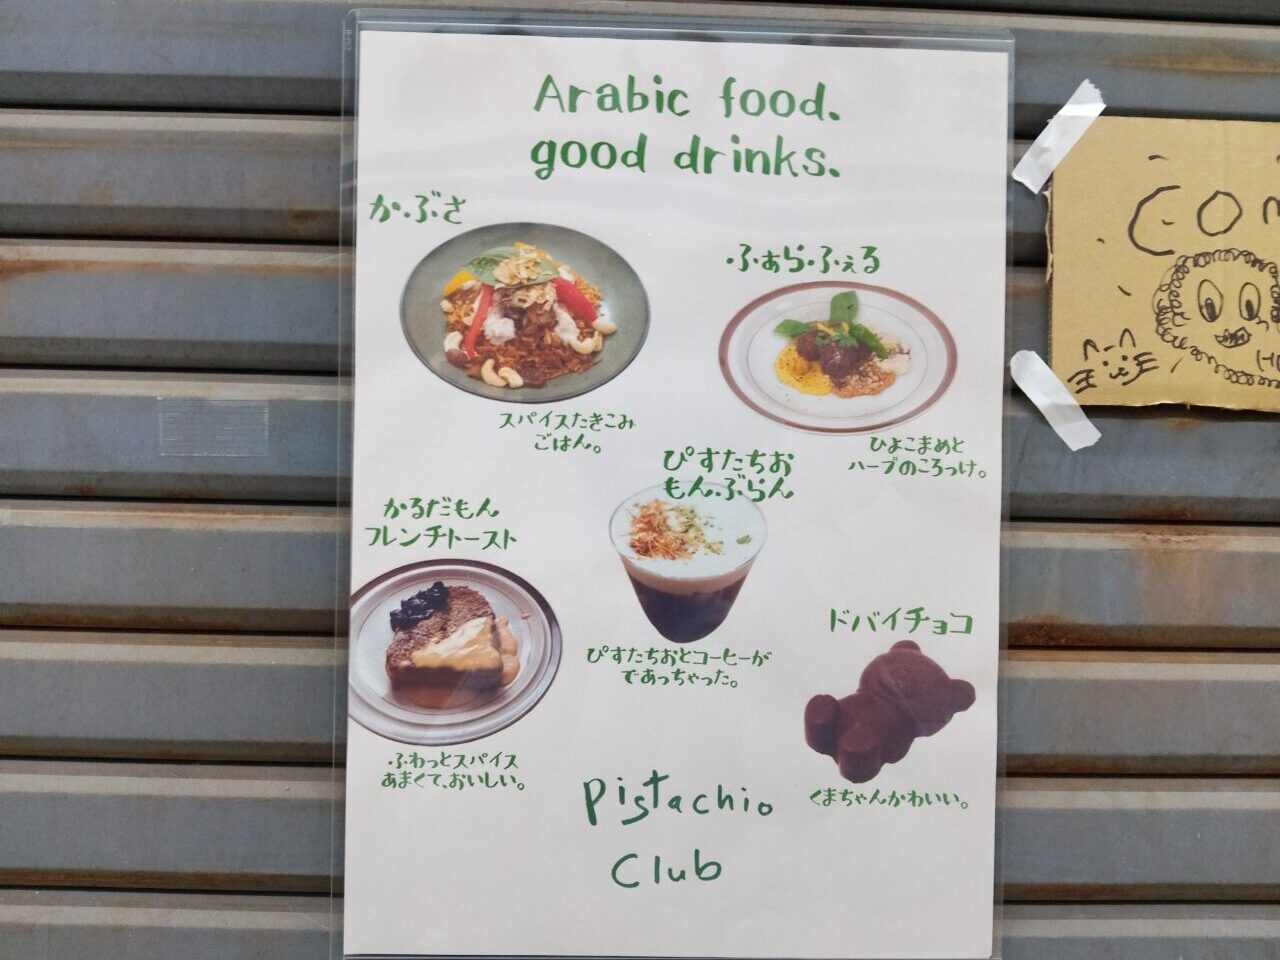 Arabic food.
good drinks.
かぶさ
スパイスたきこみ
ごはん。
ふぁらふぇる
ひよこまめと
ハーブのころっけ。
ぴすたちお
もんぶらん
ぴすたちおとコーヒーが
であっちゃった。
かるだもん
フレンチトースト
ふわっとスパイス
あまくて、おいしい。
ドバイチョコ
くまちゃんかわいい。
Pistachio
Club